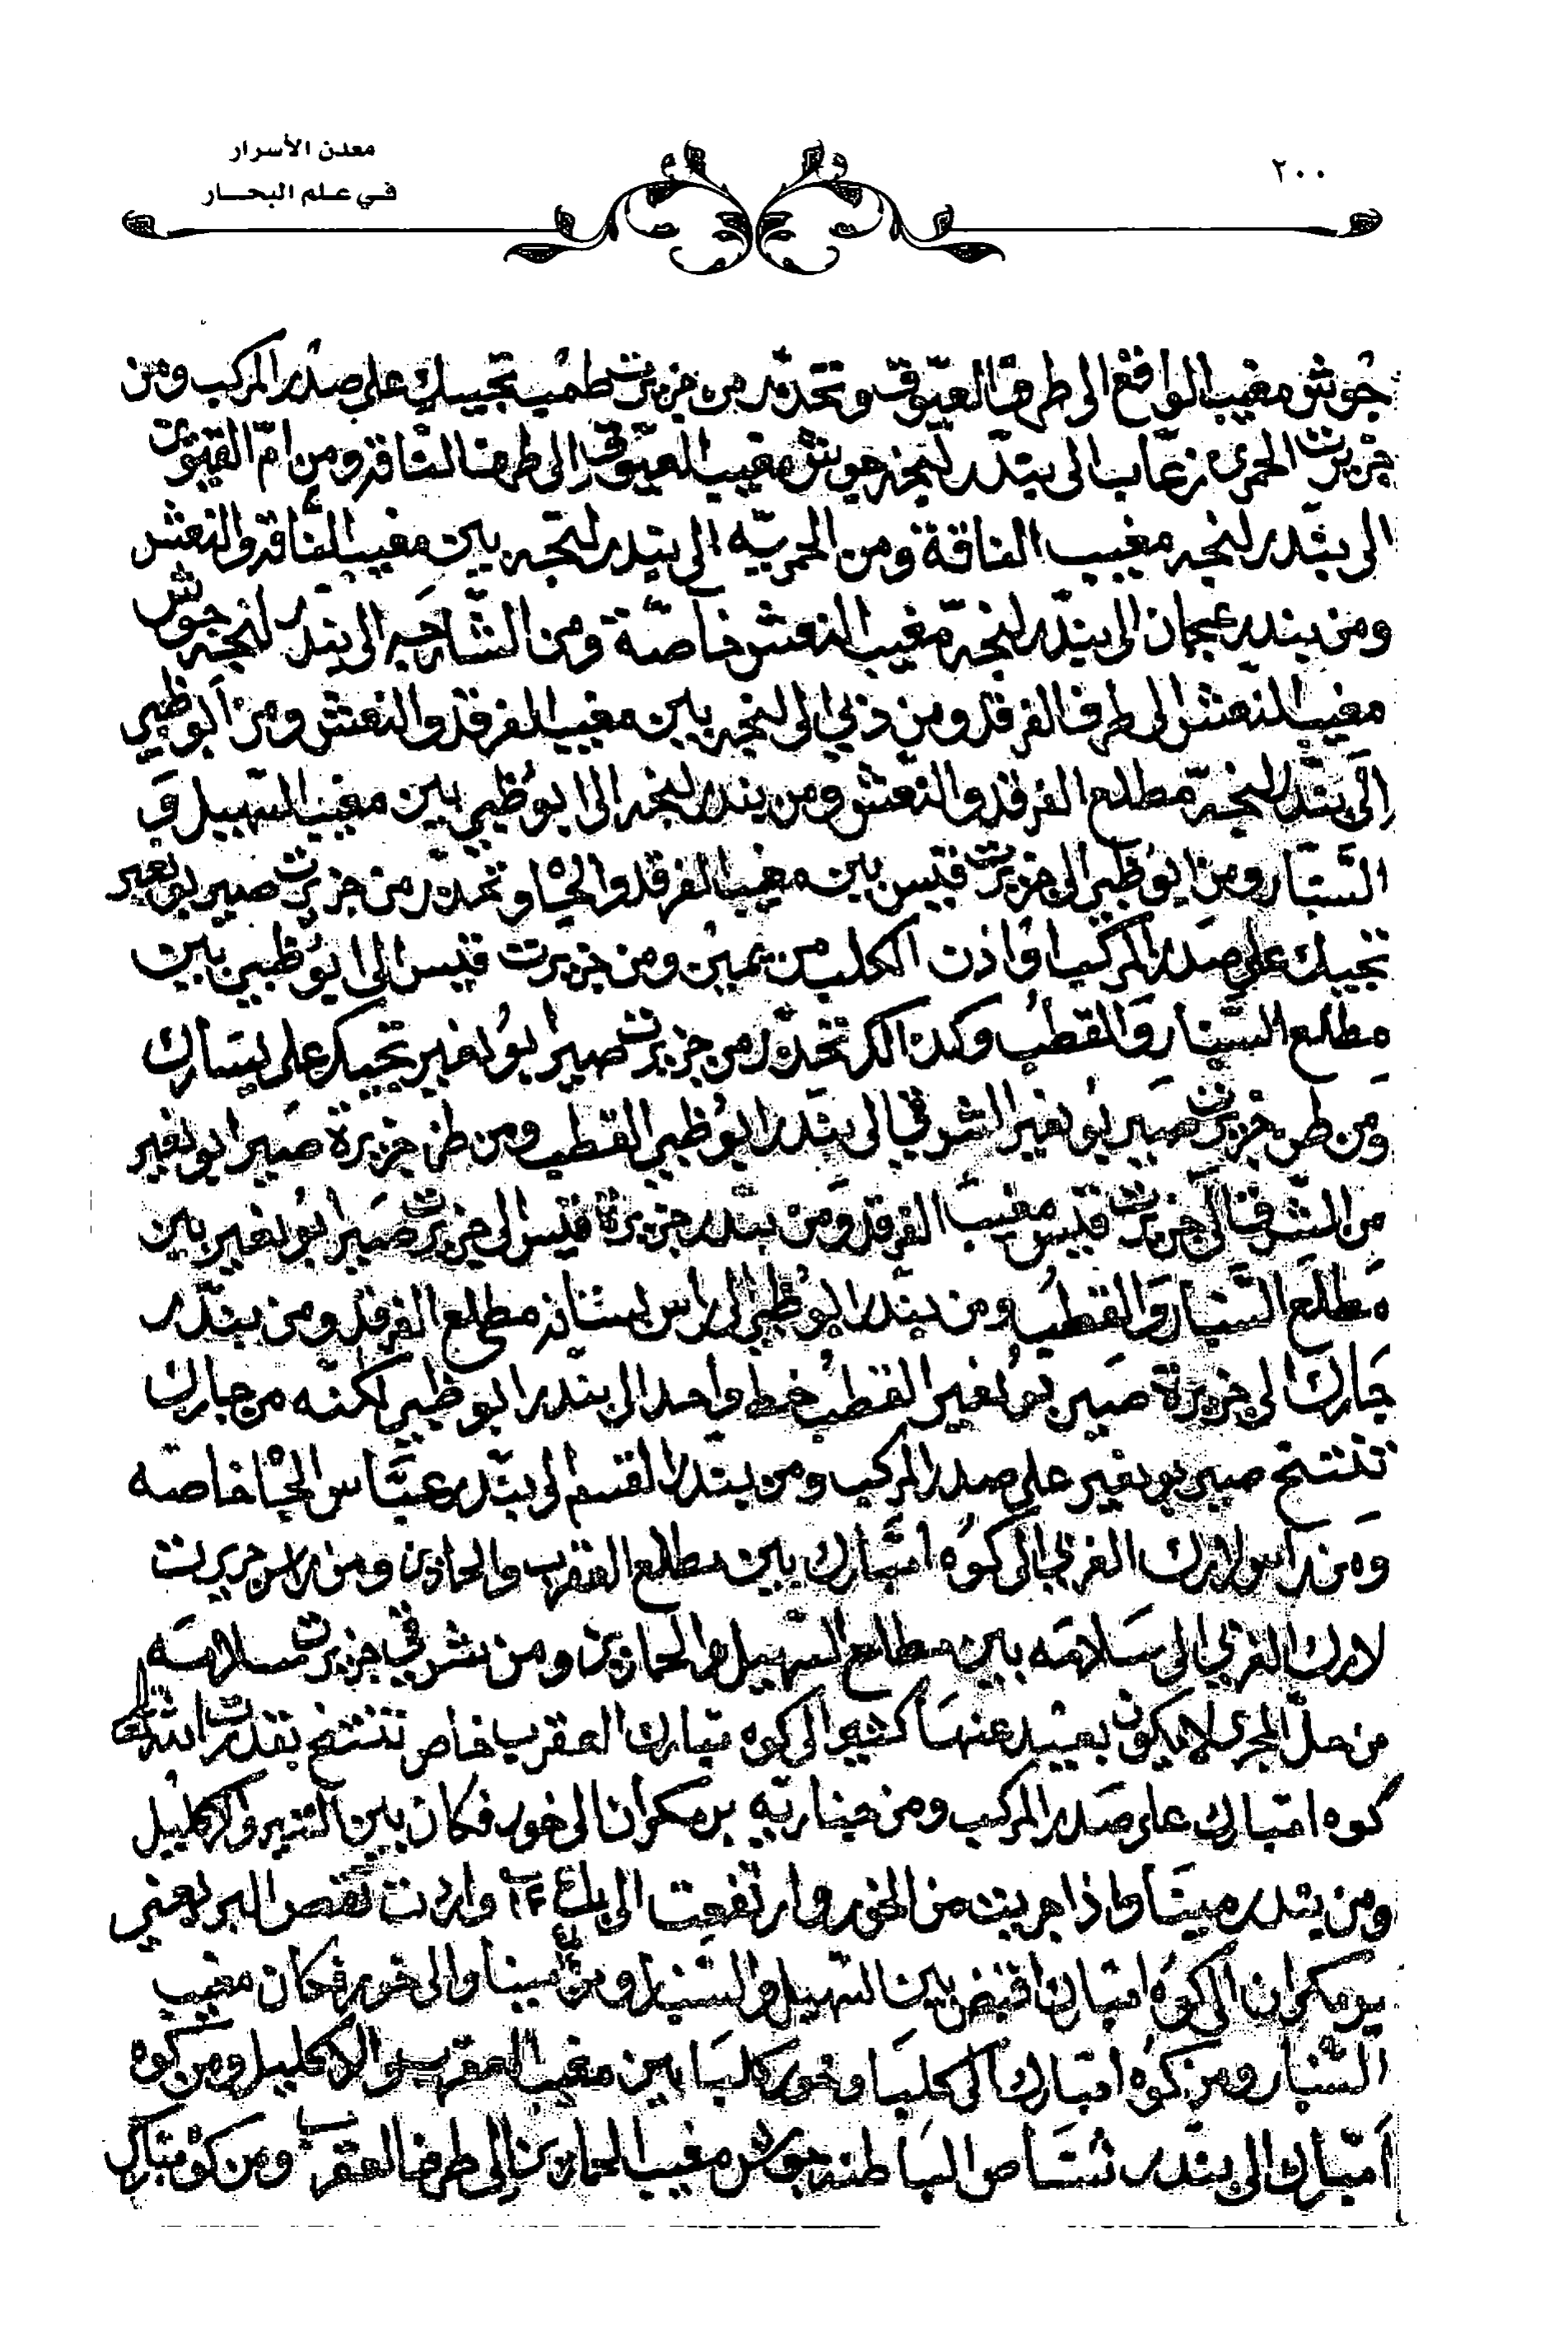 معدن الأسرار
في علم البحار
٢٠٠
جوش مغيب الواقع الى طرف العيوق وتحذر من جزيرت طمب تجيك على صدر المركب ومن
جزيرت الحمرى زعاب الى بندر لنجه جوش مغيب العيوق الى طرف الناقه ومن امّ القيوين
الى بندر لنجه مغيب الناقة ومن الحمريّه الى بندر لنجه بين مغيب الناقه والنعش
ومن بندر عجمان الى بندر لنجه مغيب النعش خاصّة ومن الشارجه الى بندر لنجه جوش
مغيب النعش الى طرف الفرقد ومن دبي الى لنجه بين مغيب الفرقد والنعش ومن ابوظبي
الى بندر لنجه مطلع الفرقد والنعش ومن بندر لنجه الى ابوظبي بين مغيب السهيل و
السنبار ومن ابوظبي الى جزيرت قيس بين مغيب الفرقد والجاه وتحذر من جزيرت صير بونعير
تجيك على صدر المركب اواذن الكلب من يمين ومن جزيرت قيس الى ابوظبي بين
مطلع السنبار والقطب وكذالك تحذر من جزيرت صير ابونعير تجيك على يسارك
ومن طرف جزيرت صير بونعير الشرقي الى بندر ابوظبي القطب ومن طرف جزيرة صير ابونعير
من الشرق الى جزيرت قيس مغيب الفرقد ومن بندر جزيرة قيس الى جزيرت صير ابونعير بين
مطلع السنبار والقطب ومن بندر ابوظبي الى راس بستانه مطلع الفرقد ومن بندر
جارك الى جزيرة صير بونعير القطب خط واحد الى بندر ابوظبي لكنّه من جارك
تنتتخ صير بونعير على صدر المركب ومن بندر القسم الى بندر عبّاس الجاه خاصّه
ومن راس لارك الغربي الى كوه امبارك بين مطلع العقرب والحمارين ومن راس جزيرت
لارك الغربي الى سلامه بين مطلع السهيل والحمارين ومن شرقي جزيرت سلامه
من حلّ المجرى لا يكون بعيد عنها كثير الى كوه مبارك العقرب خاص تنتتخ بقدرت الله تعالى
كوه امبارك على صدر المركب ومن بر مكران الى خور فكان بين التير والاكليل
ومن بندر ميناو اذا جريت من الخور وارتفعت الى باع ١٤ واردت تقص البر يعني
بر مكران الى كوه امبارك اقبض بين السهيل والسنبار ومن ميناو الى خور فكان مغيب
السنبار ومن كوه امبارك الى كلبا وخور كلبا بين مغيب العقرب والاكليل ومن كوه
امبارك الى بندر شناص الباطنه جوش مغيب الحمارين الى طرف العقرب ومن كوه مبارك